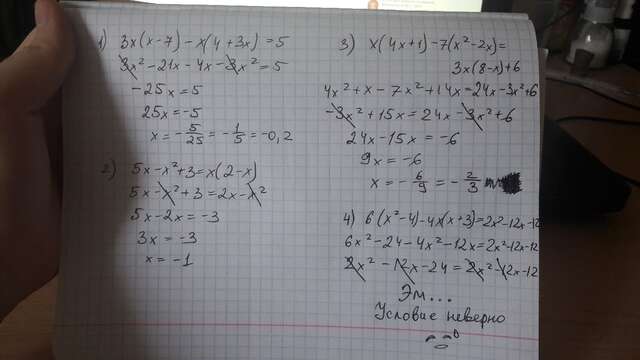 1) 3x(x-7)-x(4+3x)=5
3x²-21x-4x-3x²=5
-25x=5
25x=-5
x=-5/25=-1/5=-0,2
2) 5x-x²+3=x(2-x)
5x-x²+3=2x-x²
5x-2x=-3
3x=-3
x=-1
3) x(4x+1)-7(x²-2x)=
3x(8-x)+6
4x²+x-7x²+14x=24x-3x²+6
-3x²+15x=24x-3x²+6
24x-15x=-6
9x=-6
x=-6/9=-2/3
4) 6(x²-4)-4x(x+3)=2x²-12x-12
6x²-24-4x²-12x=2x²-12x-12
2x²-12x-24=2x²-12x-12
Эм...
Условие неверно